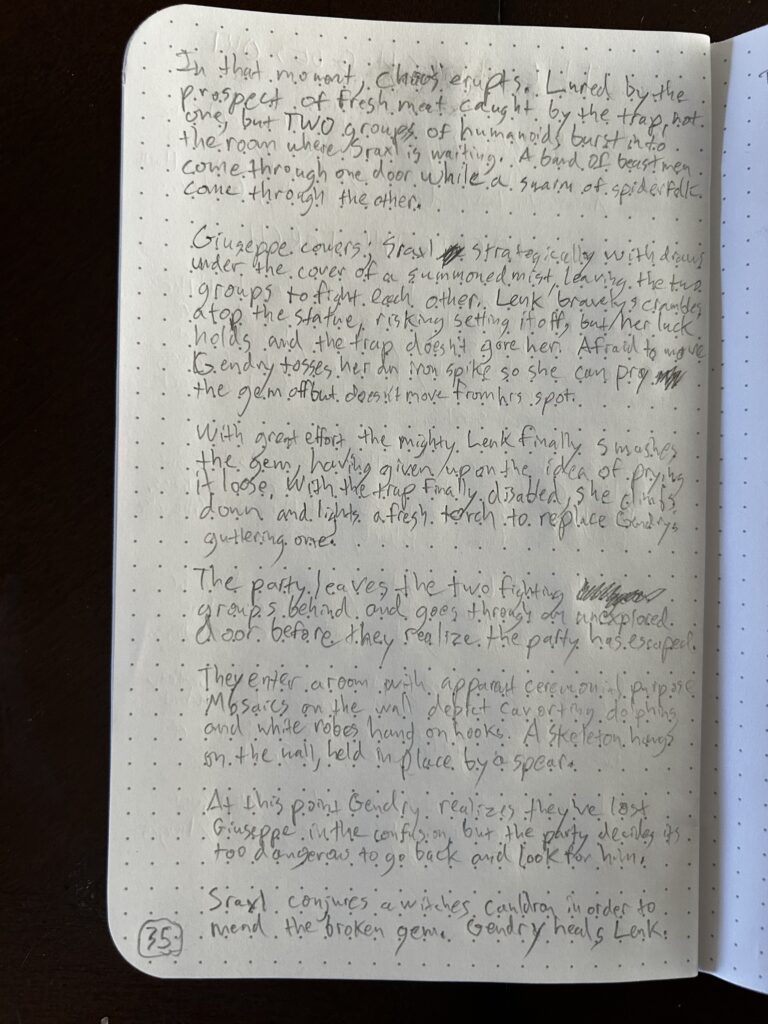 In that moment, chaos erupts. Lured by the
prospect of fresh meat caught by the trap, not
one, but TWO groups of humanoids burst into
the room where Sraxl is waiting. A band of beastmen
come through one door while a swarm of spiderfolk
come through the other.
Giuseppe covers; Sraxl strategically withdraws
under the cover of a summoned mist, leaving the two
groups to fight each other. Lenk bravely scrambles
atop the statue, risking setting it off, but her luck
holds and the trap doesn't gore her. Afraid to move
Gendry tosses her an iron spike so she can pry
the gem off but doesn't move from his spot.
With great effort the mighty Lenk finally smashes
the gem, having given up on the idea of prying
it loose. With the trap finally disabled, she climbs
down and lights a fresh torch to replace Gendrys
guttering one.
The party leaves the two fighting
groups behind and goes through an unexplored
door before they realize the party has escaped.
They enter a room with apparent ceremonial purpose
Mosaics on the wall depict cavorting dolphins
and white robes hand on hooks. A skeleton hangs
on the wall, held in place by a spear.
At this point Gendry realizes they've lost
Giuseppe in the confusion, but the party decides its
too dangerous to go back and look for him.
Sraxl conjures a witches cauldron in order to
mend the broken gem. Gendry heals Lenk.
35